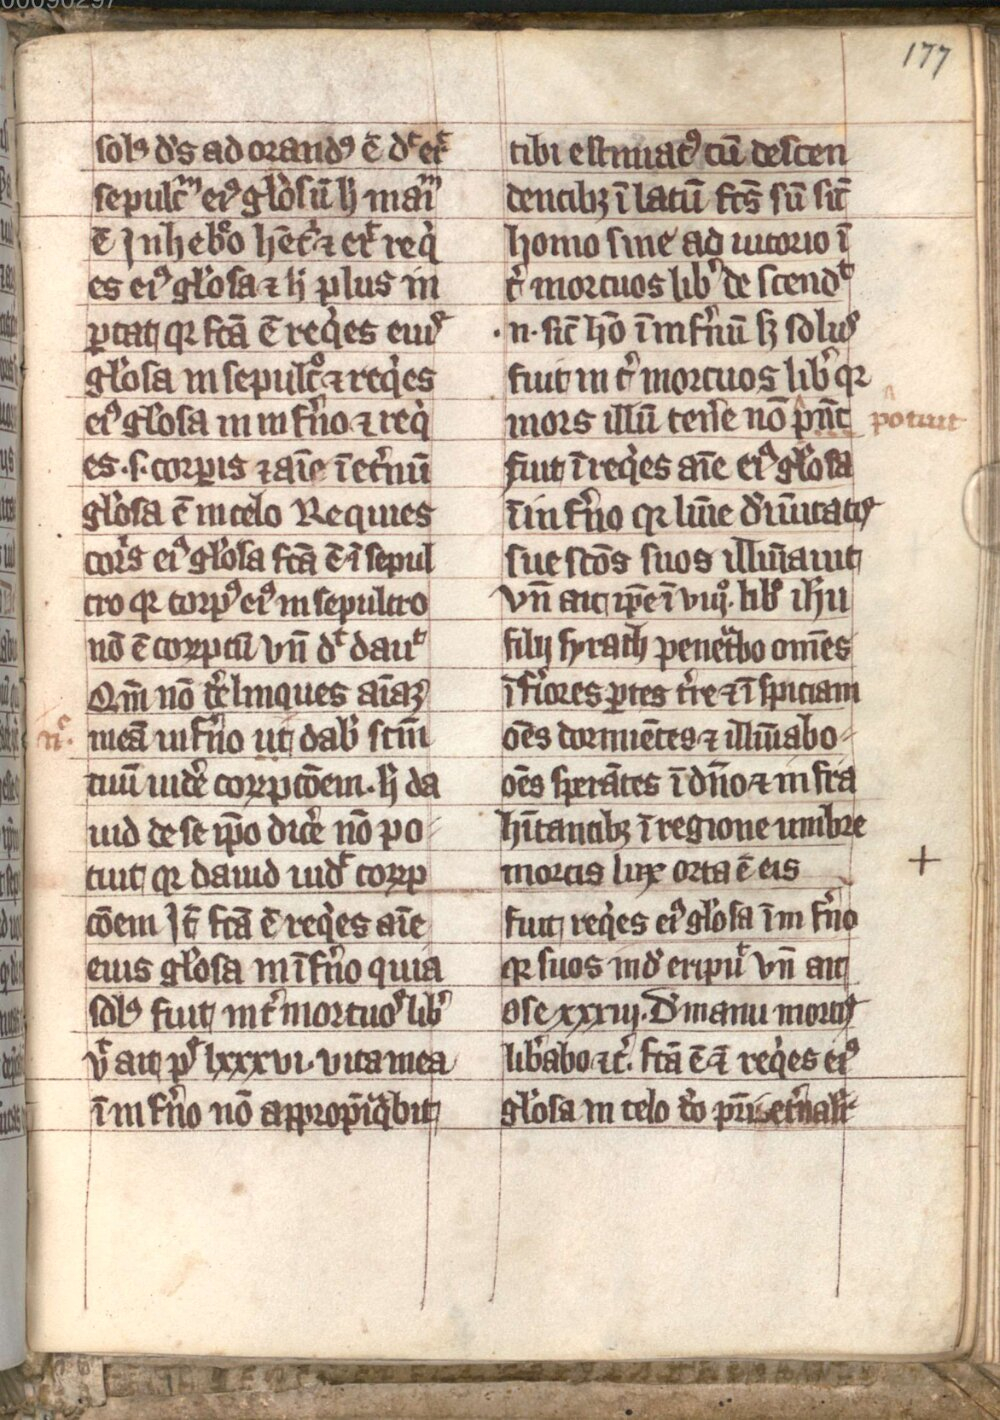 177
solꝰ dˢs ad orandꝰ ē dc̄ et̄
sepulcm̄ eiꝰ glōsū hͥ maī
ē Jn hebͦo hēt̄ ⁊ et̄ req̇
es eiꝰ glōsa ⁊ hͥ plus in
ꝑtat qr fcā ē req̇es eiuꝰ
glōsa in sepulcͦ ⁊ req̇es
eiꝰ glosa in infn̄o ⁊ req̇
es .s. corꝑis ⁊ aīe ī et̄nū
glōsa ē in celo Requies
corꝑs eiꝰ glōsa fcā ē ī sepul
cro qr corpꝰ eiꝰ in sepulcro
nō ē corꝛptū vn̄ dc̄ dauͭ
Qm̄ nō de̾linques aīaꝫ
n̄c
meā inf̄no ut dabͥ scm̄
tuū uide̾ corꝛptōem. hͥ da
uid de se ip̄o dice̾ nō po
tuit qr dauid uidͭ corꝛp
tōem Jt̄ fcā ē req̇es aīe
euis glōsa in īf̄no quia
solꝰ fuit int̾ mortuoˢ libͬ
vͭ ait pˢ lxxxvi. vita mea
ī inf̄no nō appropīq̄bit
tibi estimatꝰ cū descen
dentibꝫ ī lacū fcs̄ sū sic̄
homo sine ad iutorio ī
t̾ mortuos libͬ de scendͭ
.n. sic̄ hō ī inf̄nū sꝫ solus
fuit in t̾ mortuos libͬ qr
mors illū tene̾ nō pn̄t
potuit
fuit ī req̇es aīe eiꝰ glōsa
ī inf̄no qr lum̄e dīuītatꝭ
sue scōs suos illuīauit
vn̄ ait ip̄e ī viijͦ. libͦ ihū
filij syrach penet̾bo om̄es
īf̾iores ꝑtes t̾re ⁊ ī spiciam
oēs dormiētes ⁊ illuīabo
oēs sperātes ī dn̄o ⁊ infra
hītantibꝫ ī regione umbre
mortis lux orta ē eis
+
fuit req̇es eiꝰ glōsa ī inf̄no
qr suos indͤ eripuͭ vn̄ ait
ose xxxiij. Dͤ manu mortꝭ
libͬabo ⁊c̄. fcā ē ⁊ req̇es eiꝰ
glōsa in celo